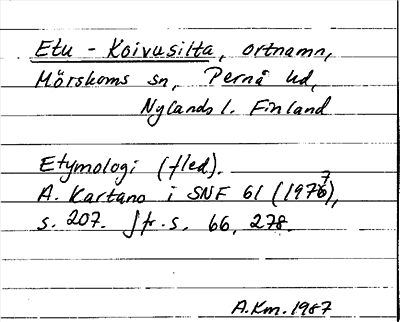 Etu - Koivusilta, ortnamn,
Mörskoms sn, Pernå hd,
Nylands l. Finland
Etymologi (fled).
A. Kartano i SNF 61 (1977),
s. 207. Jfr. s. 66, 278.
A.Km. 1987